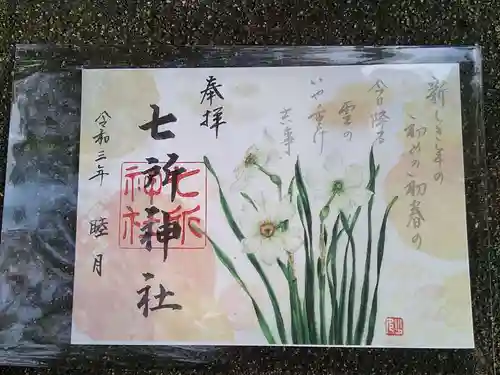 新しき年の
初めの初春の
今日降る
雪の
いや重け
吉事
奉拝
七所神社
七所
神社
令和三年
睦月